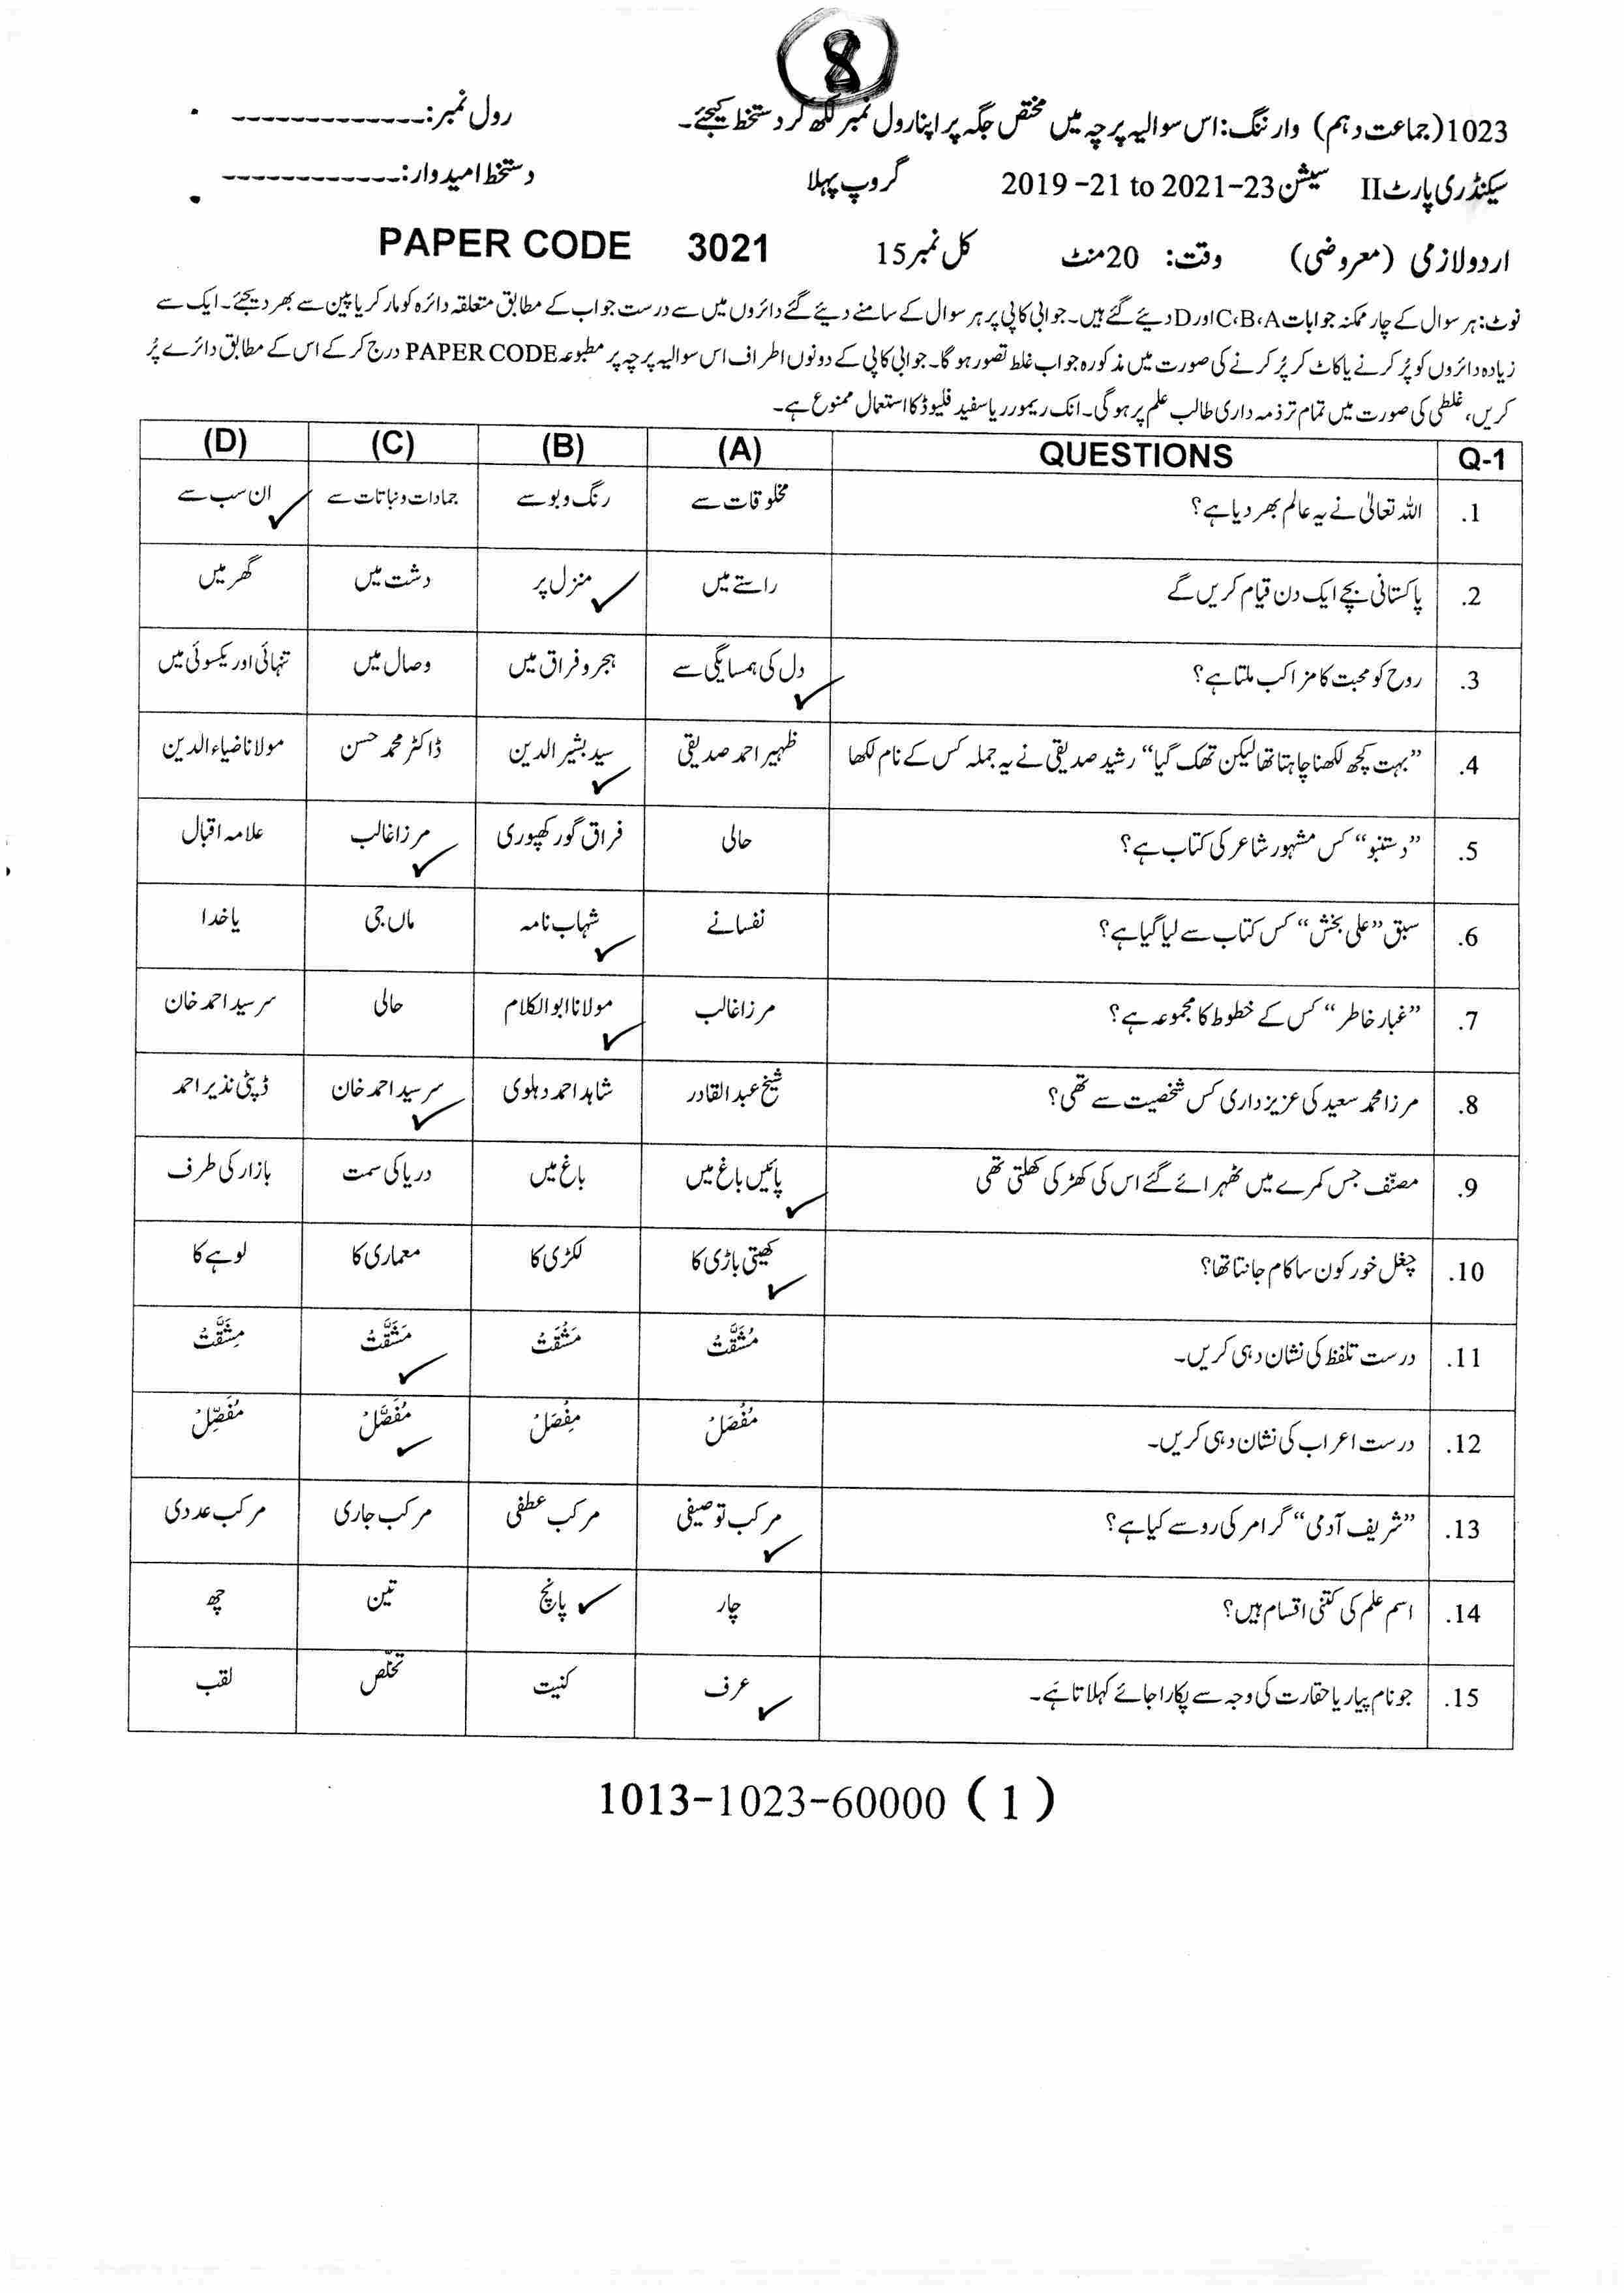 8
1023(جماعت دہم) وارننگ: اس سوالیہ پرچہ میں مختص جگہ پر اپنا رول نمبر لکھ کر دستخط کیجئے۔ رول نمبر:-------------
سیکنڈری پارٹ II سیشن 2019-21 to 2021-23 گروپ پہلا دستخط امیدوار:------------
اردو لازمی (معروضی) وقت: 20 منٹ کل نمبر 15 PAPER CODE 3021
نوٹ: ہر سوال کے چار ممکنہ جوابات A،B،C اور D دیئے گئے ہیں۔ جوابی کاپی پر ہر سوال کے سامنے دیئے گئے دائروں میں سے درست جواب کے مطابق متعلقہ دائرہ کو مارکر یا پین سے بھر دیجئے۔ ایک سے
زیادہ دائروں کو پُر کرنے یا کاٹ کر پُر کرنے کی صورت میں مذکورہ جواب غلط تصور ہو گا۔ جوابی کاپی کے دونوں اطراف اس سوالیہ پرچہ پر مطبوعہ PAPER CODE درج کر کے اس کے مطابق دائرے پُر
کریں، غلطی کی صورت میں تمام تر ذمہ داری طالب علم پر ہو گی۔ انک ریمور ریا سفید فلیوڈ کا استعمال ممنوع ہے۔
Q-1 QUESTIONS (A) (B) (C) (D)
1. اللہ تعالیٰ نے یہ عالم بھر دیا ہے؟ مخلوقات سے رنگ و بو سے جمادات و نباتات سے ان سب سے ✓
2. پاکستانی بچے ایک دن قیام کریں گے راستے میں منزل پر ✓ دشت میں گھر میں
3. روح کو محبت کا مزا کب ملتا ہے؟ دل کی ہمسایگی سے ✓ ہجر و فراق میں وصال میں تنہائی اور یکسوئی میں
4. ”بہت کچھ لکھنا چاہتا تھا لیکن تھک گیا“ رشید صدیقی نے یہ جملہ کس کے نام لکھا ظہیر احمد صدیقی سید بشیر الدین ✓ ڈاکٹر محمد حسن مولانا ضیاء الدین
5. ”دستنبو“ کس مشہور شاعر کی کتاب ہے؟ حالی فراق گورکھپوری مرزا غالب ✓ علامہ اقبال
6. سبق ”علی بخش“ کس کتاب سے لیا گیا ہے؟ نفسانے شہاب نامہ ✓ ماں جی یا خدا
7. ”غبار خاطر“ کس کے خطوط کا مجموعہ ہے؟ مرزا غالب مولانا ابوالکلام ✓ حالی سر سید احمد خان
8. مرزا محمد سعید کی عزیز داری کس شخصیت سے تھی؟ شیخ عبدالقادر شاہد احمد دہلوی سر سید احمد خان ✓ ڈپٹی نذیر احمد
9. مصنّف جس کمرے میں ٹھہرائے گئے اس کی کھڑکی کھلتی تھی پائیں باغ میں ✓ باغ میں دریا کی سمت بازار کی طرف
10. چغل خور کون سا کام جانتا تھا؟ کھیتی باڑی کا ✓ لکڑی کا معماری کا لوہے کا
11. درست تلفظ کی نشان دہی کریں۔ مُشَقَّتْ مَشُقَتْ مَشَقَّتْ ✓ مِشَقَّتْ
12. درست اعراب کی نشان دہی کریں۔ مُفَصَلْ مِفُصَلْ مُفَصَّلْ ✓ مُفَصِّلْ
13. ”شریف آدمی“ گرامر کی رو سے کیا ہے؟ مرکب توصیفی ✓ مرکب عطفی مرکب جاری مرکب عددی
14. اسم علم کی کتنی اقسام ہیں؟ چار پانچ ✓ تین چھ
15. جو نام پیار یا حقارت کی وجہ سے پکارا جائے کہلاتا ہَے۔ عرف ✓ کنیت تخلّص لقب
1013-1023-60000 (1)